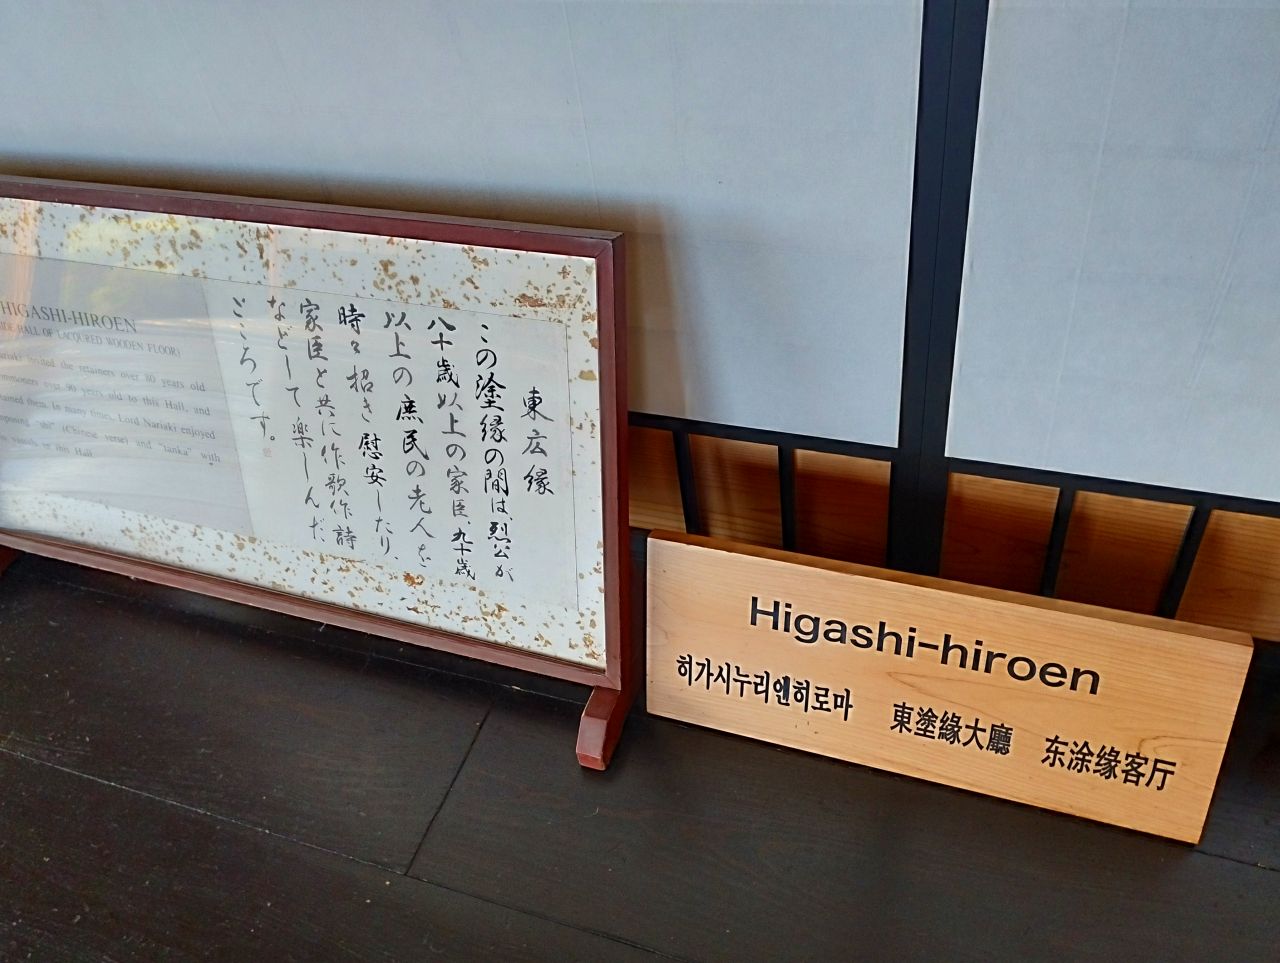 東広縁
この塗縁の間は烈公が
八十歳以上の家臣、九十歳
以上の庶民の老人を
時々招き慰安したり、
家臣と共に作歌作詩
などして楽しんだ
ところです。
HIGASHI-HIROEN
SIDE HALL OF LACQUERED WOODEN FLOOR)
Nariaki invited the retainers over 80 years old
commoners over 90 years old to this Hall, and
them. In many times, Lord Nariaki enjoyed
"shi" (Chinese verse) and "tanka" with
vassals in this Hall.
Higashi-hiroen
히가시누리엔히로마 東塗緣大廳 东涂缘客厅